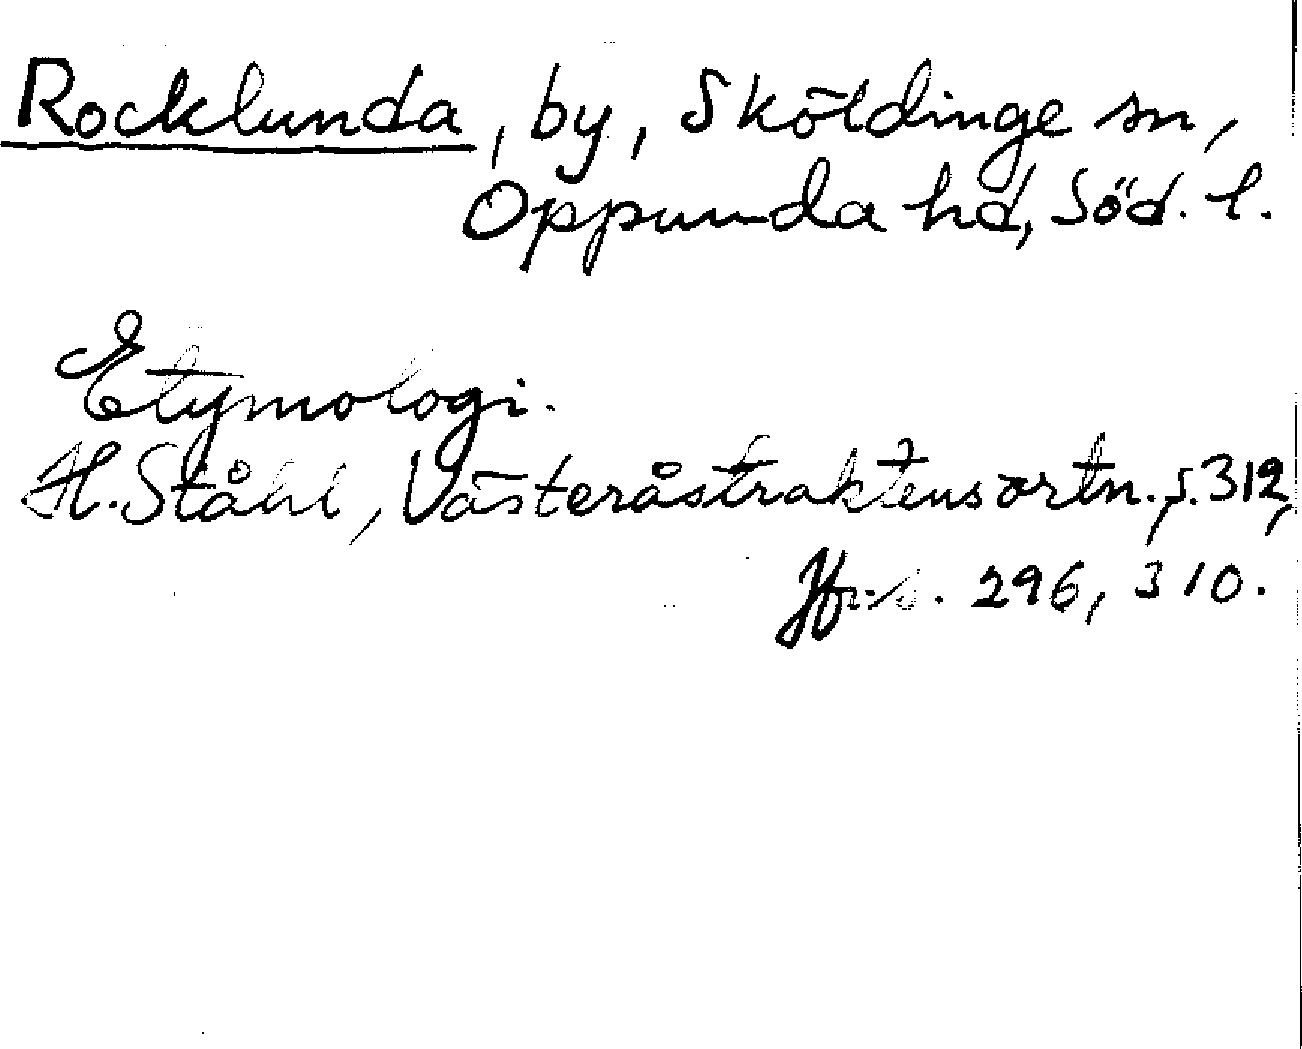 Rocklunda, by, Sköldinge sn,
Oppunda hd, Söd. l.
Etymologi.
H. Ståhl, Västeråstraktens ortn. s. 312,
Jfr s. 296, 310.